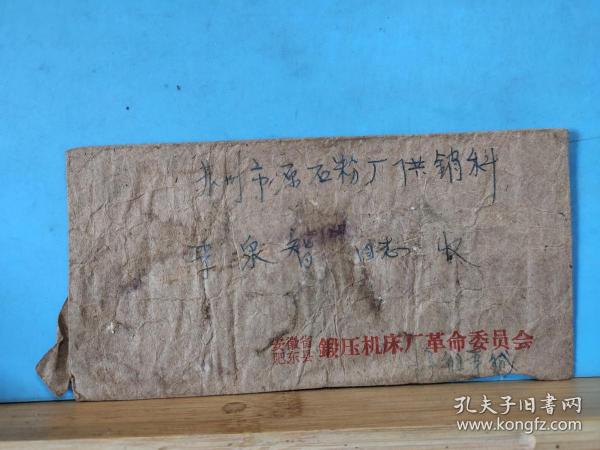 苏州市原石粉厂供销科
李泉智 同志 收
安徽省
肥东县 鍛压机床厂革命委员会
孔夫子旧书网
www.kongfz.com